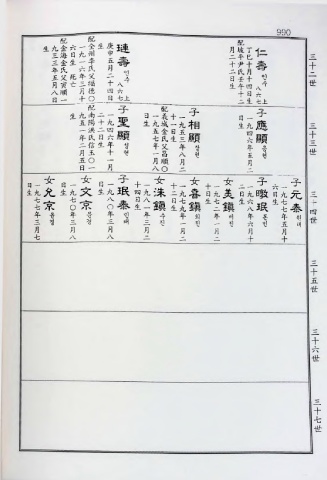 990
三十二世
仁壽 인수
上 八六七
丁巳十月十四日生
配坡平尹氏壬午十二
月二十二日生
璉壽 연수
上 八六七
庚申五月二十四日
生
配全州李氏父福德〇
一九一六年三月十
六日生 死亡
配金海金氏父貴順一
九三三年五月八日
生
三十三世
子應顯 응현
一九四六年五月二
日生
子相顯 상현
一九五三年八月二
十一日生
配義城金氏父昌順〇
一九五七年一月八
日生
子聖顯 성현
一九四六年十一月
二十二日生
配南陽洪氏信玉〇一
九五一年二月五日
生
三十四世
子元泰 원태
一九七七年五月十
六日生
子暾珉 돈민
一九六八年六月十
二日生
女美鎭 미진
一九七二年一月二
十日生
女喜鎭 희진
一九七七年一月二
十二日生
女洙鎭 수진
一九八一年三月二
十四日生
子珉泰 민태
一九八〇年三月八
日生
女文京 문경
一九七〇年三月八
日生
女允京 윤경
一九七七年三月七
日生
三十五世
三十六世
三十七世